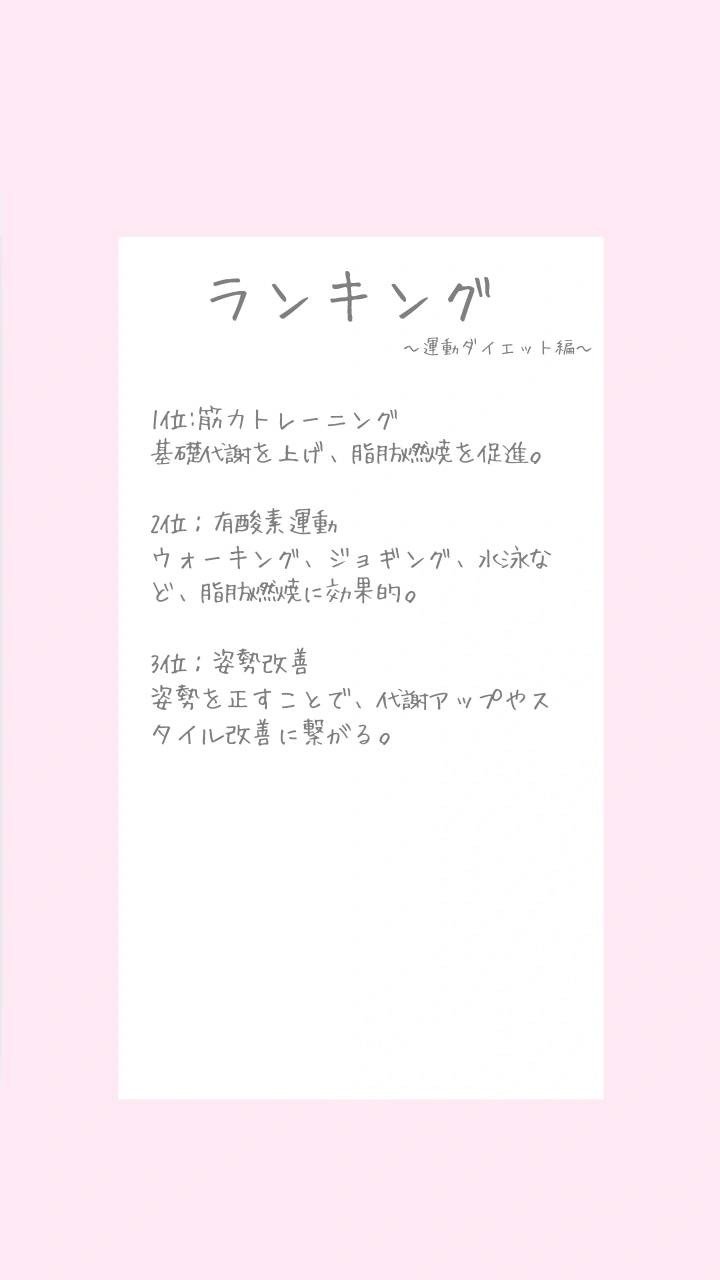 ランキング
〜運動ダイエット編〜
1位:筋力トレーニング
基礎代謝を上げ、脂肪燃焼を促進。
2位；有酸素運動
ウォーキング、ジョギング、水泳な
ど、脂肪燃焼に効果的。
3位；姿勢改善
姿勢を正すことで、代謝アップやス
タイル改善に繋がる。